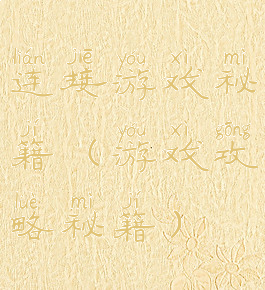 lián jiē yóu xì mì
连接游戏秘
jí yóu xì gōng
籍（游戏攻
lüè mì jí
略秘籍）